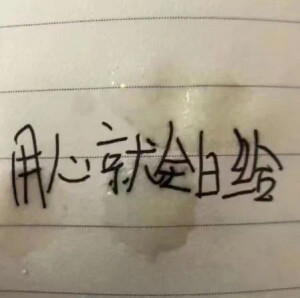 用心就全白给